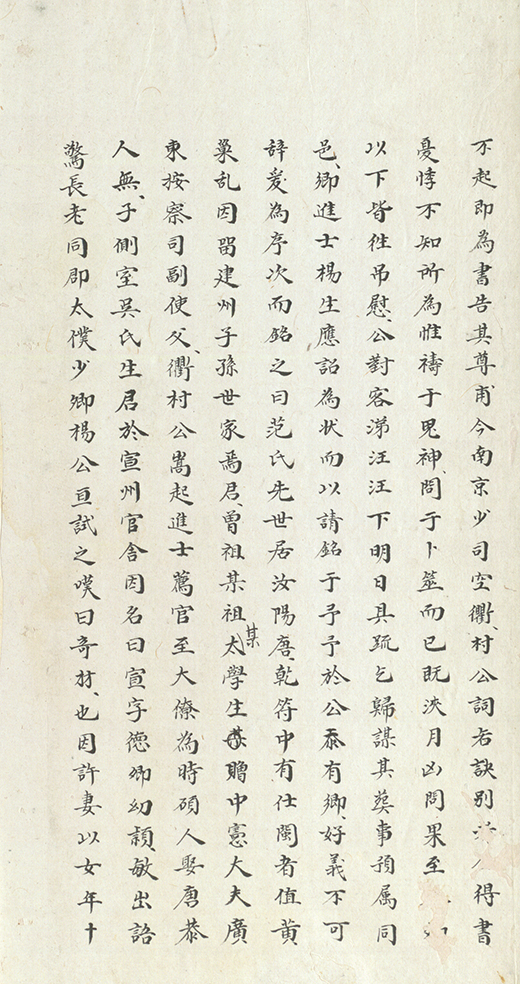 不起即為書告其尊甫今南京少司空衢村公詞若訣別 得書
憂悸不知所為惟禱于鬼神問于卜筮而已既浹月凶問果至
以下皆徃吊慰公對客涕汪汪下明日具疏乞歸謀其葬事預属同
邑鄉進士楊生應詔為状而以請銘于予予於公忝有鄉好義不可
辞爰為序次而銘之曰范氏先世居汝陽唐乾符中有仕閩者值黄
巢乱因留建州子孫世家焉君曾祖某祖某太學生贈中憲大夫廣
東按察司副使父衢村公嵩起進士薦官至大僚為時碩人娶唐恭
人無子側室吳氏生君於宣州官舎因名曰宣字德卿幼頴敏出語
驚長老同郡太僕少卿楊公亘試之嘆曰竒材也因許妻以女年十